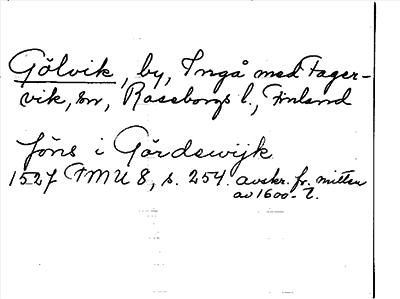 Gölvik, by, Ingå med Fager-
vik, sn, Raseborgs l., Finland
Jöns i Gördswijk
1527 FMU 8, s. 254. avskr. fr. mitten
av 1600-t.